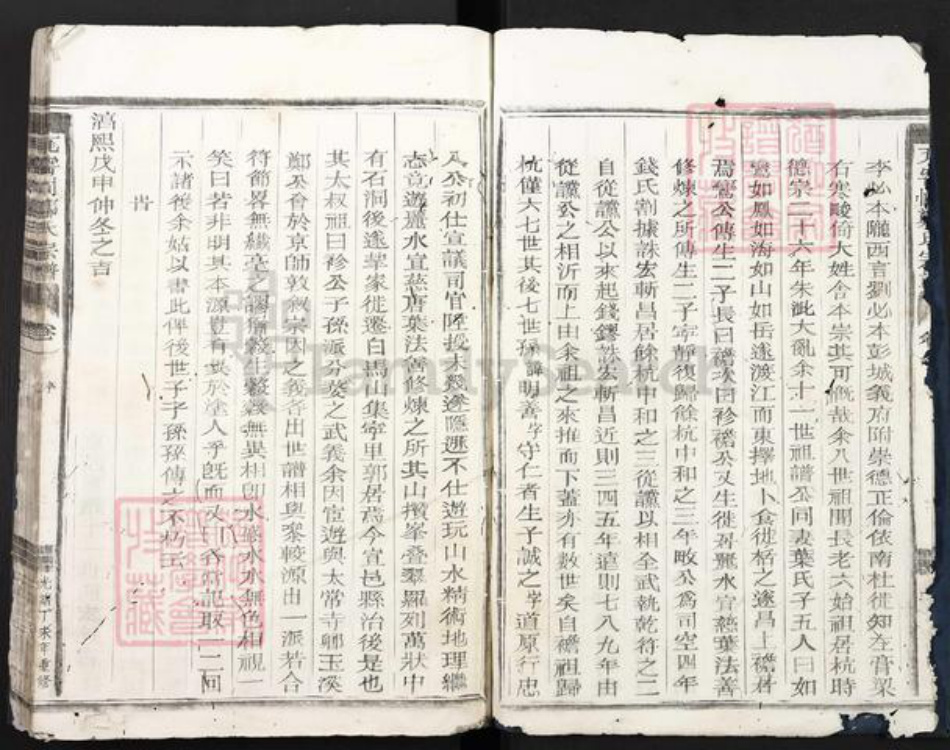 李必本隴西言劉必本彭城義府附崇德正倫依南杜徙知在膏粱
右寒畯倚大姓合本宗其可慨哉余八世祖聞長老六始祖居杭時
德宗二十六年朱泚大亂余十一世祖譜公同妻葉氏子五人曰如
鸞如鳳如海如山如岳遂渡江而東擇地卜食徙栝之遂昌上
焉鸞公傳生二子長曰襜次曰袗襜公又生徙居麗水宜慈葉法善
修煉之所傳生二子寧靜復歸餘杭中和之三年畋公為司空四年
錢氏割據誅宏斬昌居餘杭中和之三從讜以相全武執乾符之二
自從讜公以來起錢鏐誅宏斬昌近則三四五年遠則七八九年由
從讜公之相沂而上由余祖之來推而下蓋亦有數世矣自襜祖歸
杭僅六七世其後七世孫諱明善字守仁者生子誠之字道原行忠
八公初仕宣議司官陞授未幾遂隱遯不仕遊玩山水精術地理繼
志竟遊麗水宜慈唐葉法善修煉之所其山攢峯叠翠羅列萬狀中
有石洞後遂挈家徙遷白馬山集寧里郭居焉今宣邑縣治後是也
其太叔祖曰袗公子孫派分婺之武義余因宦遊與太常寺卿玉溪
鄭公會於京師敦叙宗因之義各出世譜相與參較源由一派若合
符節畧無纖毫之謬縮縠生縠縠無異相卽水感水水無色相視一
笑曰若非明其本源豈有異於塗人乎旣而又各當記取一二同
示諸後余姑以書此俾後世子子孫孫傳之不朽云
旹
淳熙戊申仲冬之吉
宗譜
卷
序
光緒丁未年重修
FamilySearch